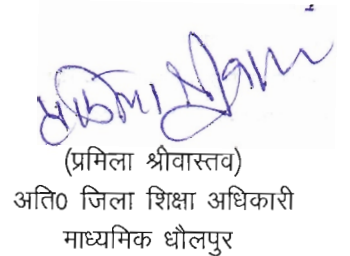 (प्रमिला श्रीवास्तव)
अति0 जिला शिक्षा अधिकारी
माध्यमिक धौलपुर